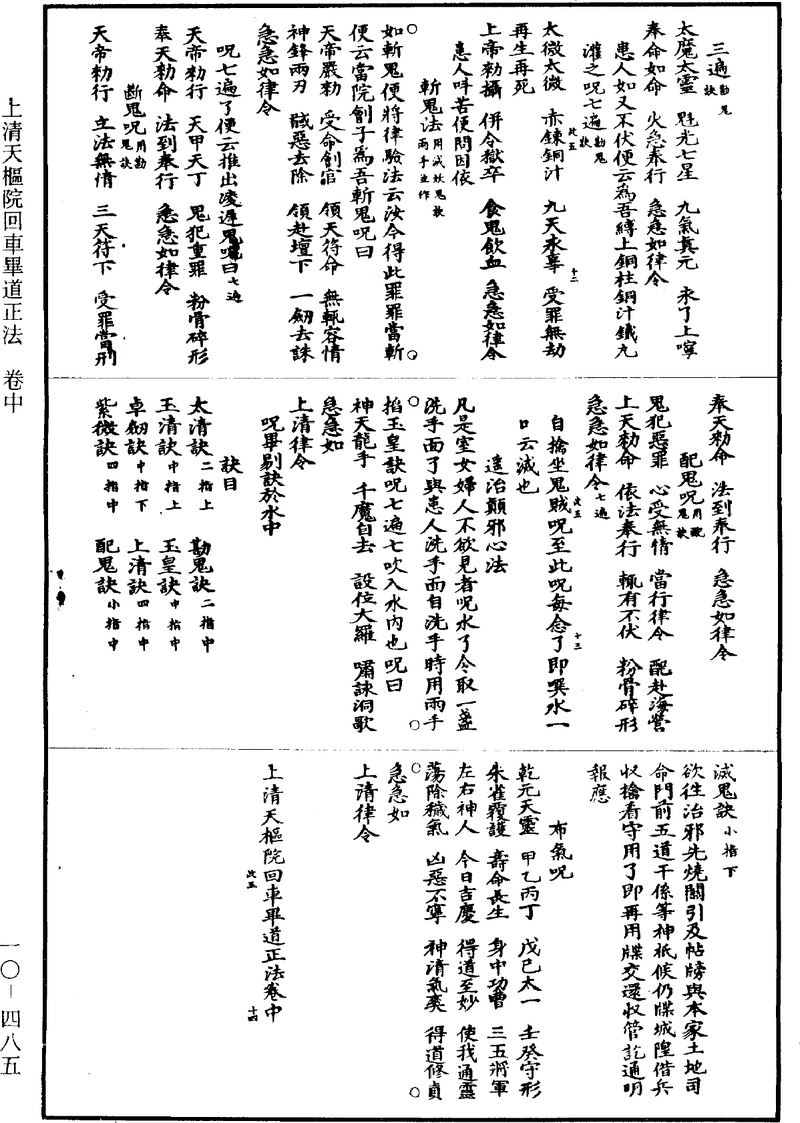 上清天樞院回車畢道正法　卷中
一〇－四八五
三遍勘鬼訣
太魔太靈　魁光七星　九氣真元　永了上寧
奉命如命　火急奉行　急急如律令
患人如又不伏便云為吾縛上銅柱銅汁鐵丸
灌之呪七遍勘鬼訣
此五　十二
太微太微　赤鍊銅汁　九天永辜　受罪無劫
再生再死
上帝勑攝　併令獄卒　食鬼飲血　急急如律令
患人呌苦便問因依
斬鬼法用滅妖鬼訣兩手並作
如斬鬼便將律驗法云汝今得此罪罪當斬
便云當院劊子為吾斬鬼呪曰
天帝嚴勑　受命劊官　領天符命　無輒容情
神鋒兩刃　馘惡去除　領赴壇下　一劒去誅
急急如律令
呪七遍了便云推出凌遲鬼呪曰七遍
天帝勑行　天甲天丁　鬼犯重罪　粉骨碎形
奉天勑命　法到奉行　急急如律令
斷鬼呪用勘鬼訣
天帝勑行　立法無情　三天符下　受罪當刑
奉天勑命　法到奉行　急急如律令
配鬼呪用配鬼訣
鬼犯惡罪　心受無情　當行律令　配赴海營
上天勑命　依法奉行　輒有不伏　粉骨碎形
急急如律令七遍
此五　十三
自擒坐鬼賊呪至此呪每念了即噀水一
口云滅也
遙治顛邪心法
凡是室女婦人不欲見者呪水了令取一盞
洗手面了與患人洗手面自洗手時用兩手
掐玉皇訣呪七遍七吹入水內也呪曰
神天龍手　千魔自去　設位大羅　嘯詠洞歌
急急如
上清律令
呪畢剔訣於水中
訣目
太清訣二指上　勘鬼訣二指中
玉清訣中指上　玉皇訣中指中
卓劒訣中指下　上清訣四指中
紫微訣四指中　配鬼訣小指中
滅鬼訣小指下
欲往治邪先燒關引及帖牓與本家土地司
命門前五道干係等神祇候仍牒城隍借兵
收擒看守用了即再用牒交還收管訖通明
報應
布氣呪
乾元天靈　甲乙丙丁　戊己太一　壬癸守形
朱雀覆護　壽命長生　身中功曹　三五將軍
左右神人　今日吉慶　得道至妙　使我通靈
蕩除穢氣　凶惡不寧　神清氣爽　得道修貞
急急如
上清律令
上清天樞院回車畢道正法卷中
此五　十四